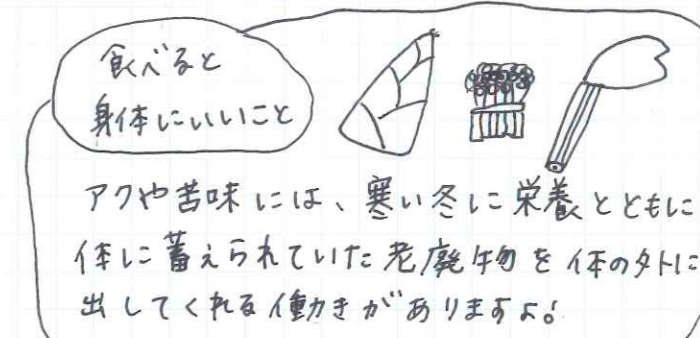 食べると
身体にいいこと
アクや苦味には、寒い冬に栄養とともに
体に蓄えられていた老廃物を体の外に
出してくれる働きがありますよ!